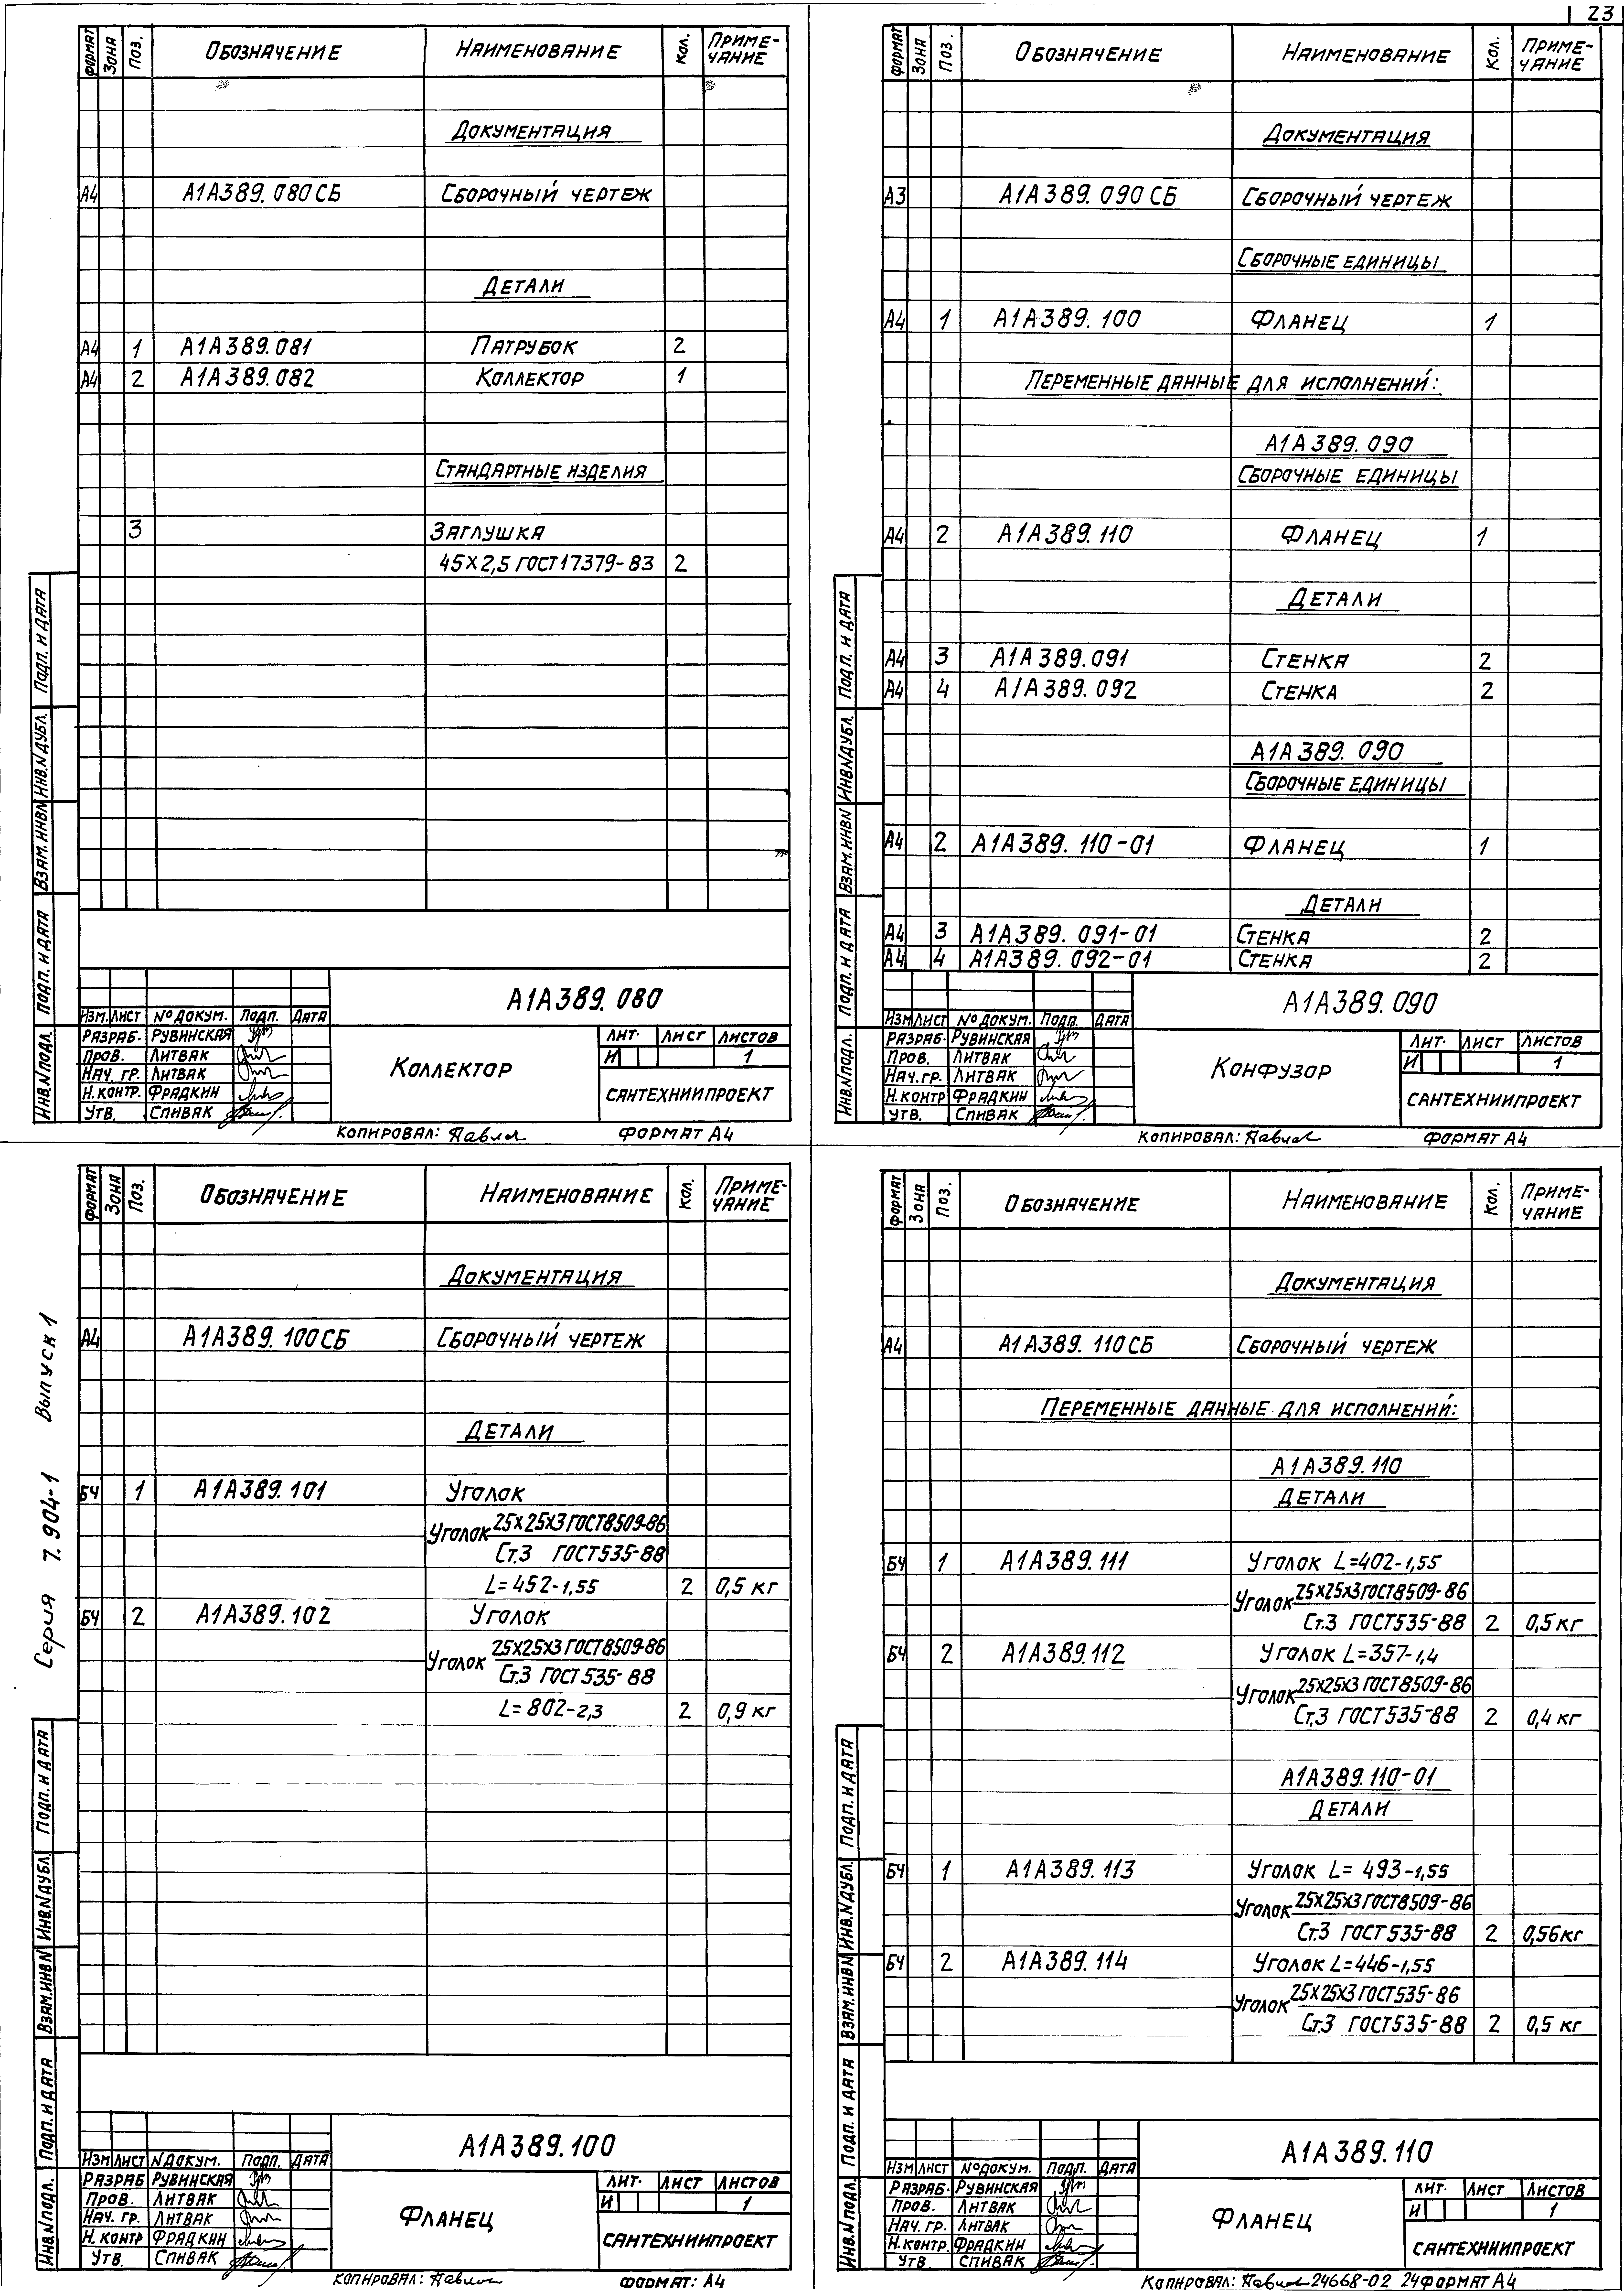 23
ФОРМАТ ЗОНА ПОЗ. ОБОЗНАЧЕНИЕ НАИМЕНОВАНИЕ КОЛ. ПРИМЕ-ЧАНИЕ
ДОКУМЕНТАЦИЯ
А4 А1А389.080СБ СБОРОЧНЫЙ ЧЕРТЕЖ
ДЕТАЛИ
А4 1 А1А389.081 ПАТРУБОК 2
А4 2 А1А389.082 КОЛЛЕКТОР 1
СТАНДАРТНЫЕ ИЗДЕЛИЯ
3 ЗАГЛУШКА
45×2,5 ГОСТ17379-83 2
ПОДП. И ДАТА
ИНВ.N ДУБЛ.
ВЗАМ.ИНВN
ПОДП. И ДАТА
ИНВ.N ПОДЛ.
А1А389.080
ИЗМ. ЛИСТ №ДОКУМ. ПОДП. ДАТА
РАЗРАБ. РУВИНСКАЯ ЛИТ. ЛИСТ ЛИСТОВ
ПРОВ. ЛИТВАК И 1
НАЧ. ГР. ЛИТВАК КОЛЛЕКТОР
Н.КОНТР. ФРАДКИН САНТЕХНИИПРОЕКТ
УТВ. СПИВАК
КОПИРОВАЛ: ФОРМАТ А4
ФОРМАТ ЗОНА ПОЗ. ОБОЗНАЧЕНИЕ НАИМЕНОВАНИЕ КОЛ. ПРИМЕ-ЧАНИЕ
ДОКУМЕНТАЦИЯ
А3 А1А389.090СБ СБОРОЧНЫЙ ЧЕРТЕЖ
СБОРОЧНЫЕ ЕДИНИЦЫ
А4 1 А1А389.100 ФЛАНЕЦ 1
ПЕРЕМЕННЫЕ ДАННЫЕ ДЛЯ ИСПОЛНЕНИЙ:
А1А389.090
СБОРОЧНЫЕ ЕДИНИЦЫ
А4 2 А1А389.110 ФЛАНЕЦ 1
ДЕТАЛИ
А4 3 А1А389.091 СТЕНКА 2
А4 4 А1А389.092 СТЕНКА 2
А1А389.090
СБОРОЧНЫЕ ЕДИНИЦЫ
А4 2 А1А389.110-01 ФЛАНЕЦ 1
ДЕТАЛИ
А4 3 А1А389.091-01 СТЕНКА 2
А4 4 А1А389.092-01 СТЕНКА 2
ПОДП. И ДАТА
ИНВ.N ДУБЛ.
ВЗАМ.ИНВN
ПОДП. И ДАТА
ИНВ.N ПОДЛ.
А1А389.090
ИЗМ ЛИСТ №ДОКУМ. ПОДП. ДАТА
РАЗРАБ. РУВИНСКАЯ ЛИТ. ЛИСТ ЛИСТОВ
ПРОВ. ЛИТВАК И 1
НАЧ.ГР. ЛИТВАК КОНФУЗОР
Н.КОНТР ФРАДКИН САНТЕХНИИПРОЕКТ
УТВ. СПИВАК
КОПИРОВАЛ: ФОРМАТ А4
Серия 7.904-1 Выпуск 1
ФОРМАТ ЗОНА ПОЗ. ОБОЗНАЧЕНИЕ НАИМЕНОВАНИЕ КОЛ. ПРИМЕ-ЧАНИЕ
ДОКУМЕНТАЦИЯ
А4 А1А389.100СБ СБОРОЧНЫЙ ЧЕРТЕЖ
ДЕТАЛИ
БЧ 1 А1А389.101 УГОЛОК
УГОЛОК 25×25×3 ГОСТ8509-86
Ст.3 ГОСТ535-88
L=452-1,55 2 0,5 кг
БЧ 2 А1А389.102 УГОЛОК
УГОЛОК 25×25×3 ГОСТ8509-86
Ст.3 ГОСТ535-88
L=802-2,3 2 0,9 кг
ПОДП. И ДАТА
ИНВ.N ДУБЛ.
ВЗАМ.ИНВN
ПОДП. И ДАТА
ИНВ.N ПОДЛ.
А1А389.100
ИЗМ ЛИСТ NДОКУМ. ПОДП. ДАТА
РАЗРАБ РУВИНСКАЯ ЛИТ. ЛИСТ ЛИСТОВ
ПРОВ. ЛИТВАК И 1
НАЧ. ГР. ЛИТВАК ФЛАНЕЦ
Н.КОНТР ФРАДКИН САНТЕХНИИПРОЕКТ
УТВ. СПИВАК
КОПИРОВАЛ: ФОРМАТ: А4
ФОРМАТ ЗОНА ПОЗ. ОБОЗНАЧЕНИЕ НАИМЕНОВАНИЕ КОЛ. ПРИМЕ-ЧАНИЕ
ДОКУМЕНТАЦИЯ
А4 А1А389.110СБ СБОРОЧНЫЙ ЧЕРТЕЖ
ПЕРЕМЕННЫЕ ДАННЫЕ ДЛЯ ИСПОЛНЕНИЙ:
А1А389.110
ДЕТАЛИ
БЧ 1 А1А389.111 УГОЛОК L=402-1,55
УГОЛОК 25×25×3 ГОСТ8509-86
Ст.3 ГОСТ535-88 2 0,5 кг
БЧ 2 А1А389.112 УГОЛОК L=357-1,4
УГОЛОК 25×25×3 ГОСТ8509-86
Ст.3 ГОСТ535-88 2 0,4 кг
А1А389.110-01
ДЕТАЛИ
БЧ 1 А1А389.113 УГОЛОК L=493-1,55
УГОЛОК 25×25×3 ГОСТ8509-86
Ст.3 ГОСТ535-88 2 0,56кг
БЧ 2 А1А389.114 УГОЛОК L=446-1,55
УГОЛОК 25×25×3 ГОСТ535-86
Ст.3 ГОСТ535-88 2 0,5 кг
ПОДП. И ДАТА
ИНВ.N ДУБЛ.
ВЗАМ.ИНВN
ПОДП. И ДАТА
ИНВ.N ПОДЛ.
А1А389.110
ИЗМ ЛИСТ №ДОКУМ. ПОДП. ДАТА
РАЗРАБ. РУВИНСКАЯ ЛИТ. ЛИСТ ЛИСТОВ
ПРОВ. ЛИТВАК И 1
НАЧ. ГР. ЛИТВАК ФЛАНЕЦ
Н.КОНТР. ФРАДКИН САНТЕХНИИПРОЕКТ
УТВ СПИВАК
КОПИРОВАЛ: 24668-02 24 ФОРМАТ А4